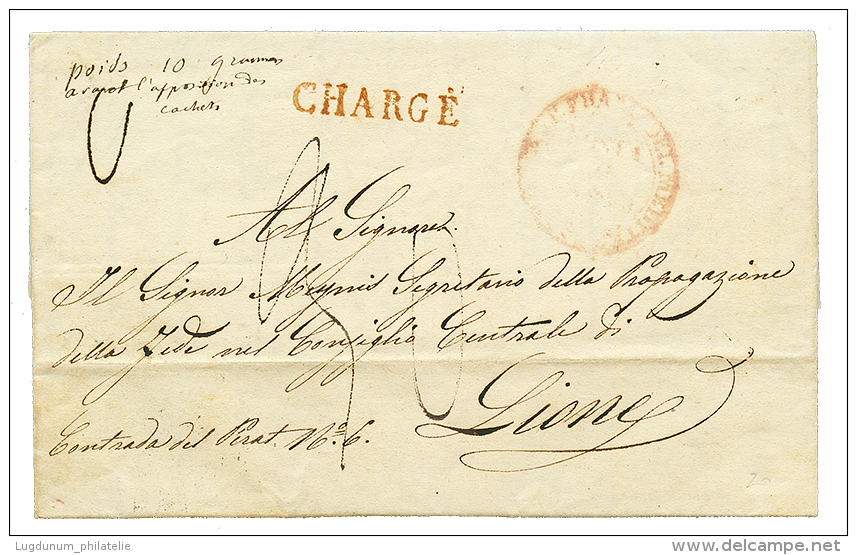 poids 10 grammes
avant l'apposition des
cachets
CHARGÉ
Al Signore
Il Signor Meynis Segretario della Propagazione
della Fede nel Consiglio Centrale di
Lione
Contrada del Perat Nº 6.
20
Lugdunum_philatelie
delcampe.net